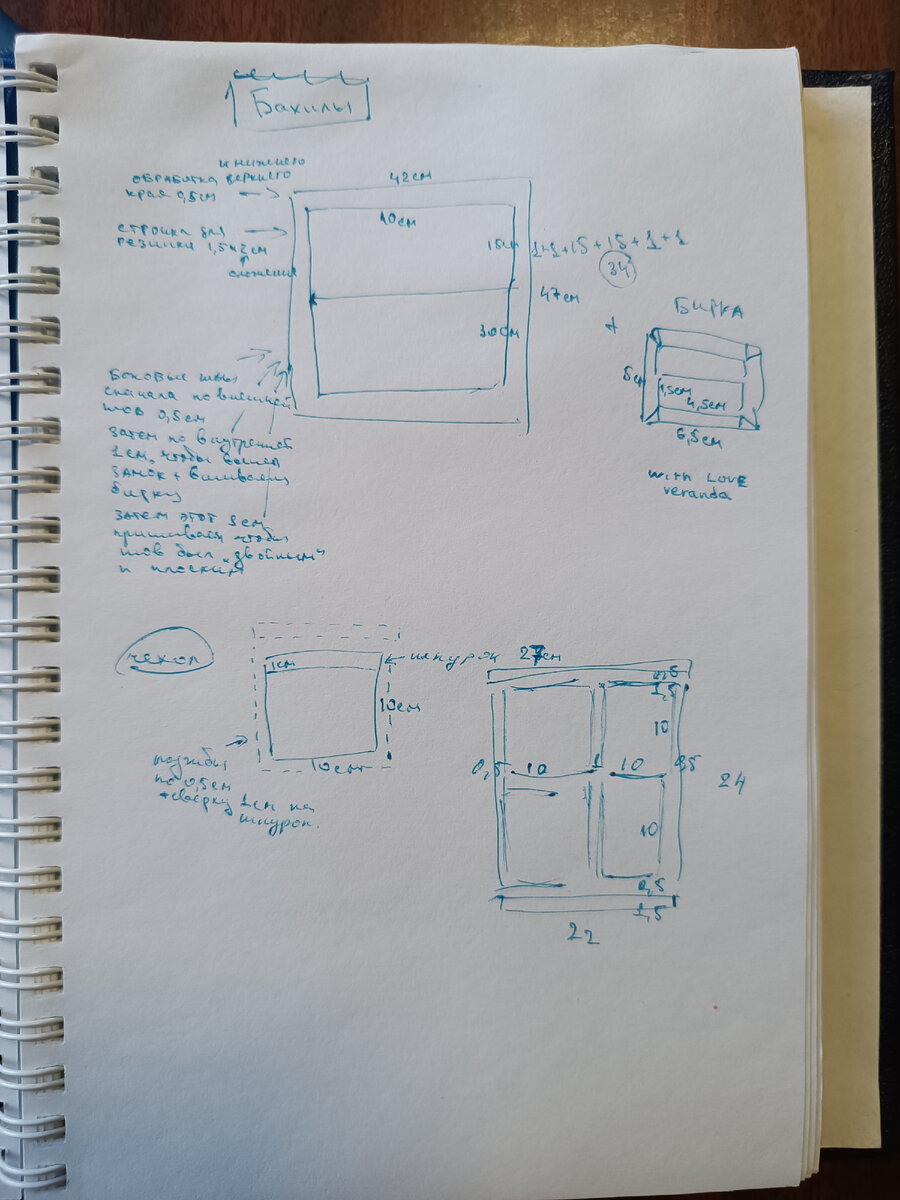 Бахилы
и нижнего
обработка верхнего
края 0,5см
42см
10см
строчка для
резинки 1,5×2см
сложения
15см
1+1+15+15+1+1
34
47см
30см
+
БИРКА
5см
1,5см
4,5см
6,5см
with LOVE
veranda
Боковые швы
сначала по внешней
шов 0,5см
затем по внутренней
1см, чтобы вышел
замок + вшиваем
бирку
затем этот 1см
пришиваем чтобы
шов был „двойным"
и плоским
чехол
1см
шнурок
10см
10см
подгибы
по 0,5см
+ сверху 1см на
шнурок.
27см
0,5
1,5
10
0,5
10
1
10
0,5
24
10
0,5
1,5
22